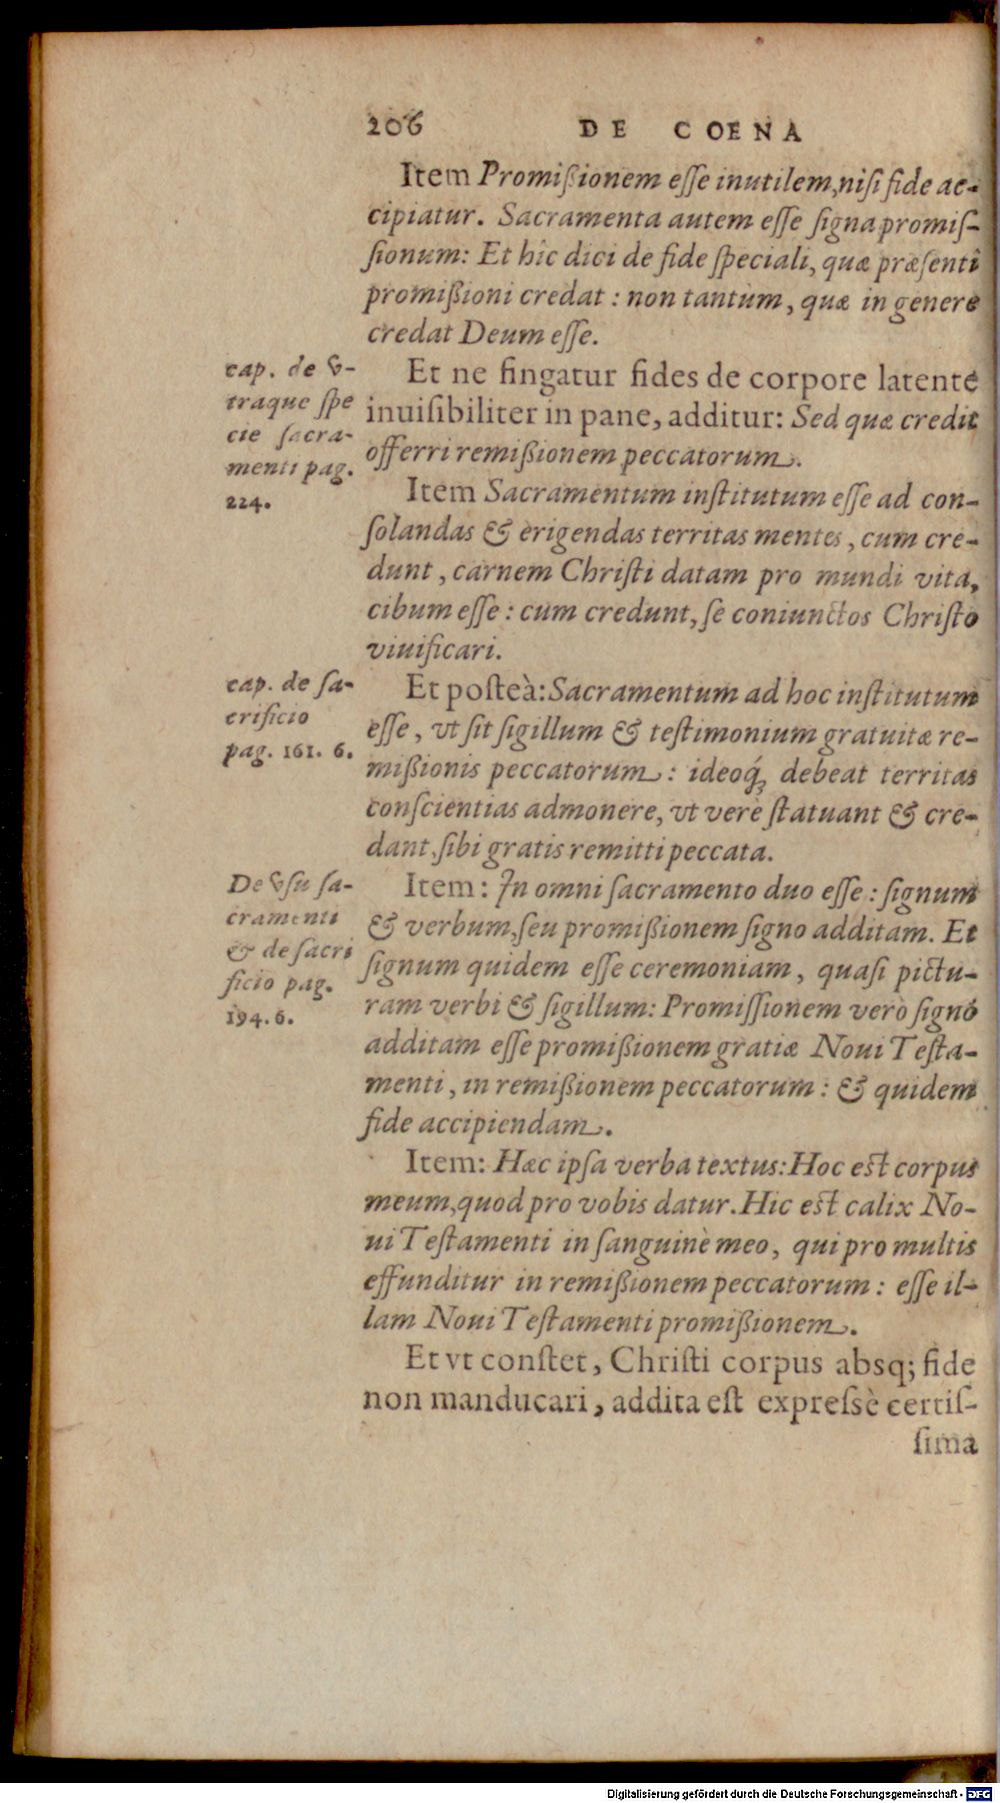 206 DE COENA
Item Promißionem eſſe inutilem, niſi fide ac-
cipiatur. Sacramenta autem eſſe ſigna promiſ-
ſionum: Et hîc dici de fide ſpeciali, quæ præſenti
promißioni credat: non tantùm, quæ in genere
credat Deum eſſe.
Et ne fingatur fides de corpore latente
inuiſibiliter in pane, additur: Sed quæ credit
offerri remißionem peccatorum.
Item Sacramentum inſtitutum eſſe ad con-
ſolandas & erigendas territas mentes, cum cre-
dunt, carnem Chriſti datam pro mundi vita,
cibum eſſe: cum credunt, ſe coniunctos Chriſto
viuificari.
Et poſteà: Sacramentum ad hoc inſtitutum
eſſe, vt ſit ſigillum & teſtimonium gratuitæ re-
mißionis peccatorum: ideoq́; debeat territas
conſcientias admonere, vt verè ſtatuant & cre-
dant, ſibi gratis remitti peccata.
Item: In omni ſacramento duo eſſe: ſignum
& verbum, ſeu promißionem ſigno additam. Et
ſignum quidem eſſe ceremoniam, quaſi pictu-
ram verbi & ſigillum: Promiſſionem verò ſigno
additam eſſe promißionem gratiæ Noui Teſta-
menti, in remißionem peccatorum: & quidem
fide accipiendam.
Item: Hæc ipſa verba textus: Hoc eſt corpus
meum, quod pro vobis datur. Hic eſt calix No-
ui Teſtamenti in ſanguinè meo, qui pro multis
effunditur in remißionem peccatorum: eſſe il-
lam Noui Teſtamenti promißionem.
Et vt conſtet, Chriſti corpus absq; fide
non manducari, addita eſt expreſsè certiſ-
ſima
cap. de v-
traque ſpe
cie ſacra-
menti pag.
224.
cap. de ſa-
crificio
pag. 161. 6.
De vſu ſa-
cramenti
& de ſacri
ficio pag.
194. 6.
Digitalisierung gefördert durch die Deutsche Forschungsgemeinschaft - DFG